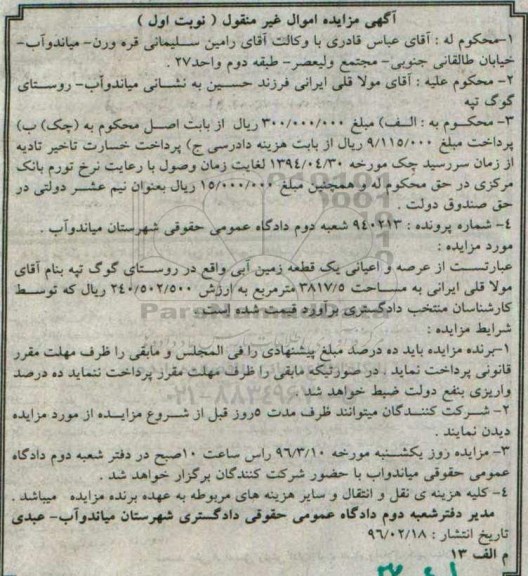 آگهی مزایده اموال غیر منقول ( نوبت اول )
۱-محکوم له : آقای عباس قادری با وکالت آقای رامین سلیمانی قره ورن- میاندوآب-
خیابان طالقانی جنوبی- مجتمع ولیعصر- طبقه دوم واحد۲۷ .
۲- محکوم علیه : آقای مولا قلی ایرانی فرزند حسین به نشانی میاندوآب- روستای
گوگ تپه
۳- محکوم به : الف) مبلغ ۳۰۰/۰۰۰/۰۰۰ ریال از بابت اصل محکوم به (چک) ب)
پرداخت مبلغ ۹/۱۱۵/۰۰۰ ریال از بابت هزینه دادرسی ج) پرداخت خسارت تاخیر تادیه
از زمان سررسید چک مورخه ۱۳۹۴/۰۴/۳۰ لغایت زمان وصول با رعایت نرخ تورم بانک
مرکزی در حق محکوم له و همچنین مبلغ ۱۵/۰۰۰/۰۰۰ ریال بعنوان نیم عشر دولتی در
حق صندوق دولت .
۴- شماره پرونده : ۹۴۰۲۱۳ شعبه دوم دادگاه عمومی حقوقی شهرستان میاندوآب .
مورد مزایده :
عبارتست از عرصه و اعیانی یک قطعه زمین آبی واقع در روستای گوگ تپه بنام آقای
مولا قلی ایرانی به مساحت ۳۸۱۷/۵ مترمربع به ارزش ۲۴۰/۵۰۲/۵۰۰ ریال که توسط
کارشناسان منتخب دادگستری برآورد قیمت شده است.
شرایط مزایده :
۱-برنده مزایده باید ده درصد مبلغ پیشنهادی را فی المجلس و مابقی را ظرف مهلت مقرر
قانونی پرداخت نماید . در صورتیکه مابقی را ظرف مهلت مقرر پرداخت ننماید ده درصد
واریزی بنفع دولت ضبط خواهد شد .
۲- شرکت کنندگان میتوانند ظرف مدت ۵روز قبل از شروع مزایده از مورد مزایده
دیدن نمایند .
۳- مزایده روز یکشنبه مورخه ۹۶/۳/۱۰ راس ساعت ۱۰صبح در دفتر شعبه دوم دادگاه
عمومی حقوقی میاندواب با حضور شرکت کنندگان برگزار خواهد شد .
۴- کلیه هزینه ی نقل و انتقال و سایر هزینه های مربوطه به عهده برنده مزایده میباشد .
مدیر دفترشعبه دوم دادگاه عمومی حقوقی دادگستری شهرستان میاندوآب- عبدی
تاریخ انتشار : ۹۶/۰۲/۱۸
م الف ۱۳